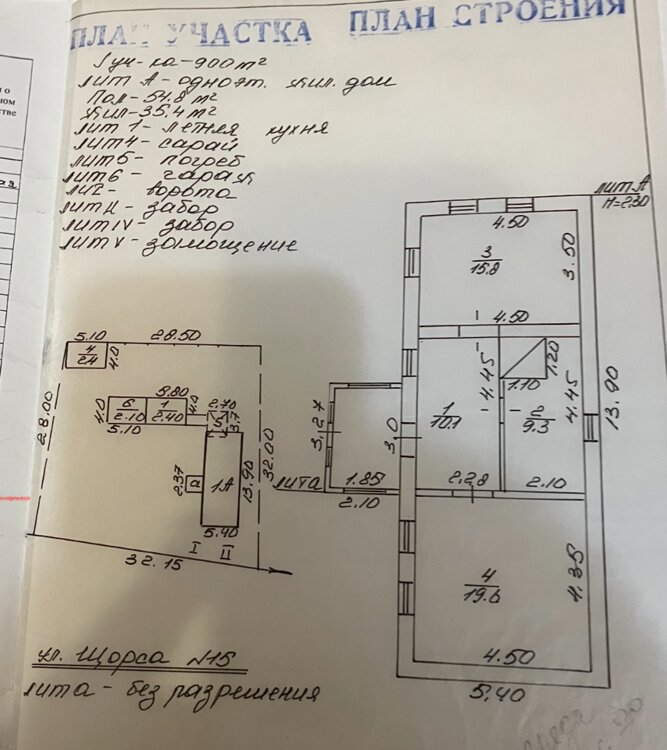 ПЛАН УЧАСТКА ПЛАН СТРОЕНИЯ
1 уч-ка-900 м²
лит А-одноэт. жил. дом
Пол-54.8 м²
Жил-35.4 м²
лит 1-летняя кухня
лит 4-сарай
лит 5-погреб
лит 6-гараж
лит I-ворота
лит II-забор
лит IV-забор
лит V-замощение
лит А
H=2.30
4.50
3
15.8
3.50
4.50
1.20
1.10
4.45
4.45
1
10.1
2
9.3
13.90
3.27
3.0
лита
1.85
2.10
2.28
2.10
4
19.6
4.35
4.50
5.40
5.10
28.50
4
2.4
4.0
28.00
5.80
4.0
6
2.10
1
2.40
4.0
5.10
2.70
5
3.7
32.00
2.37
а
1А
13.90
5.40
I II
32.15
ул. Щорса №15
лита - без разрешения